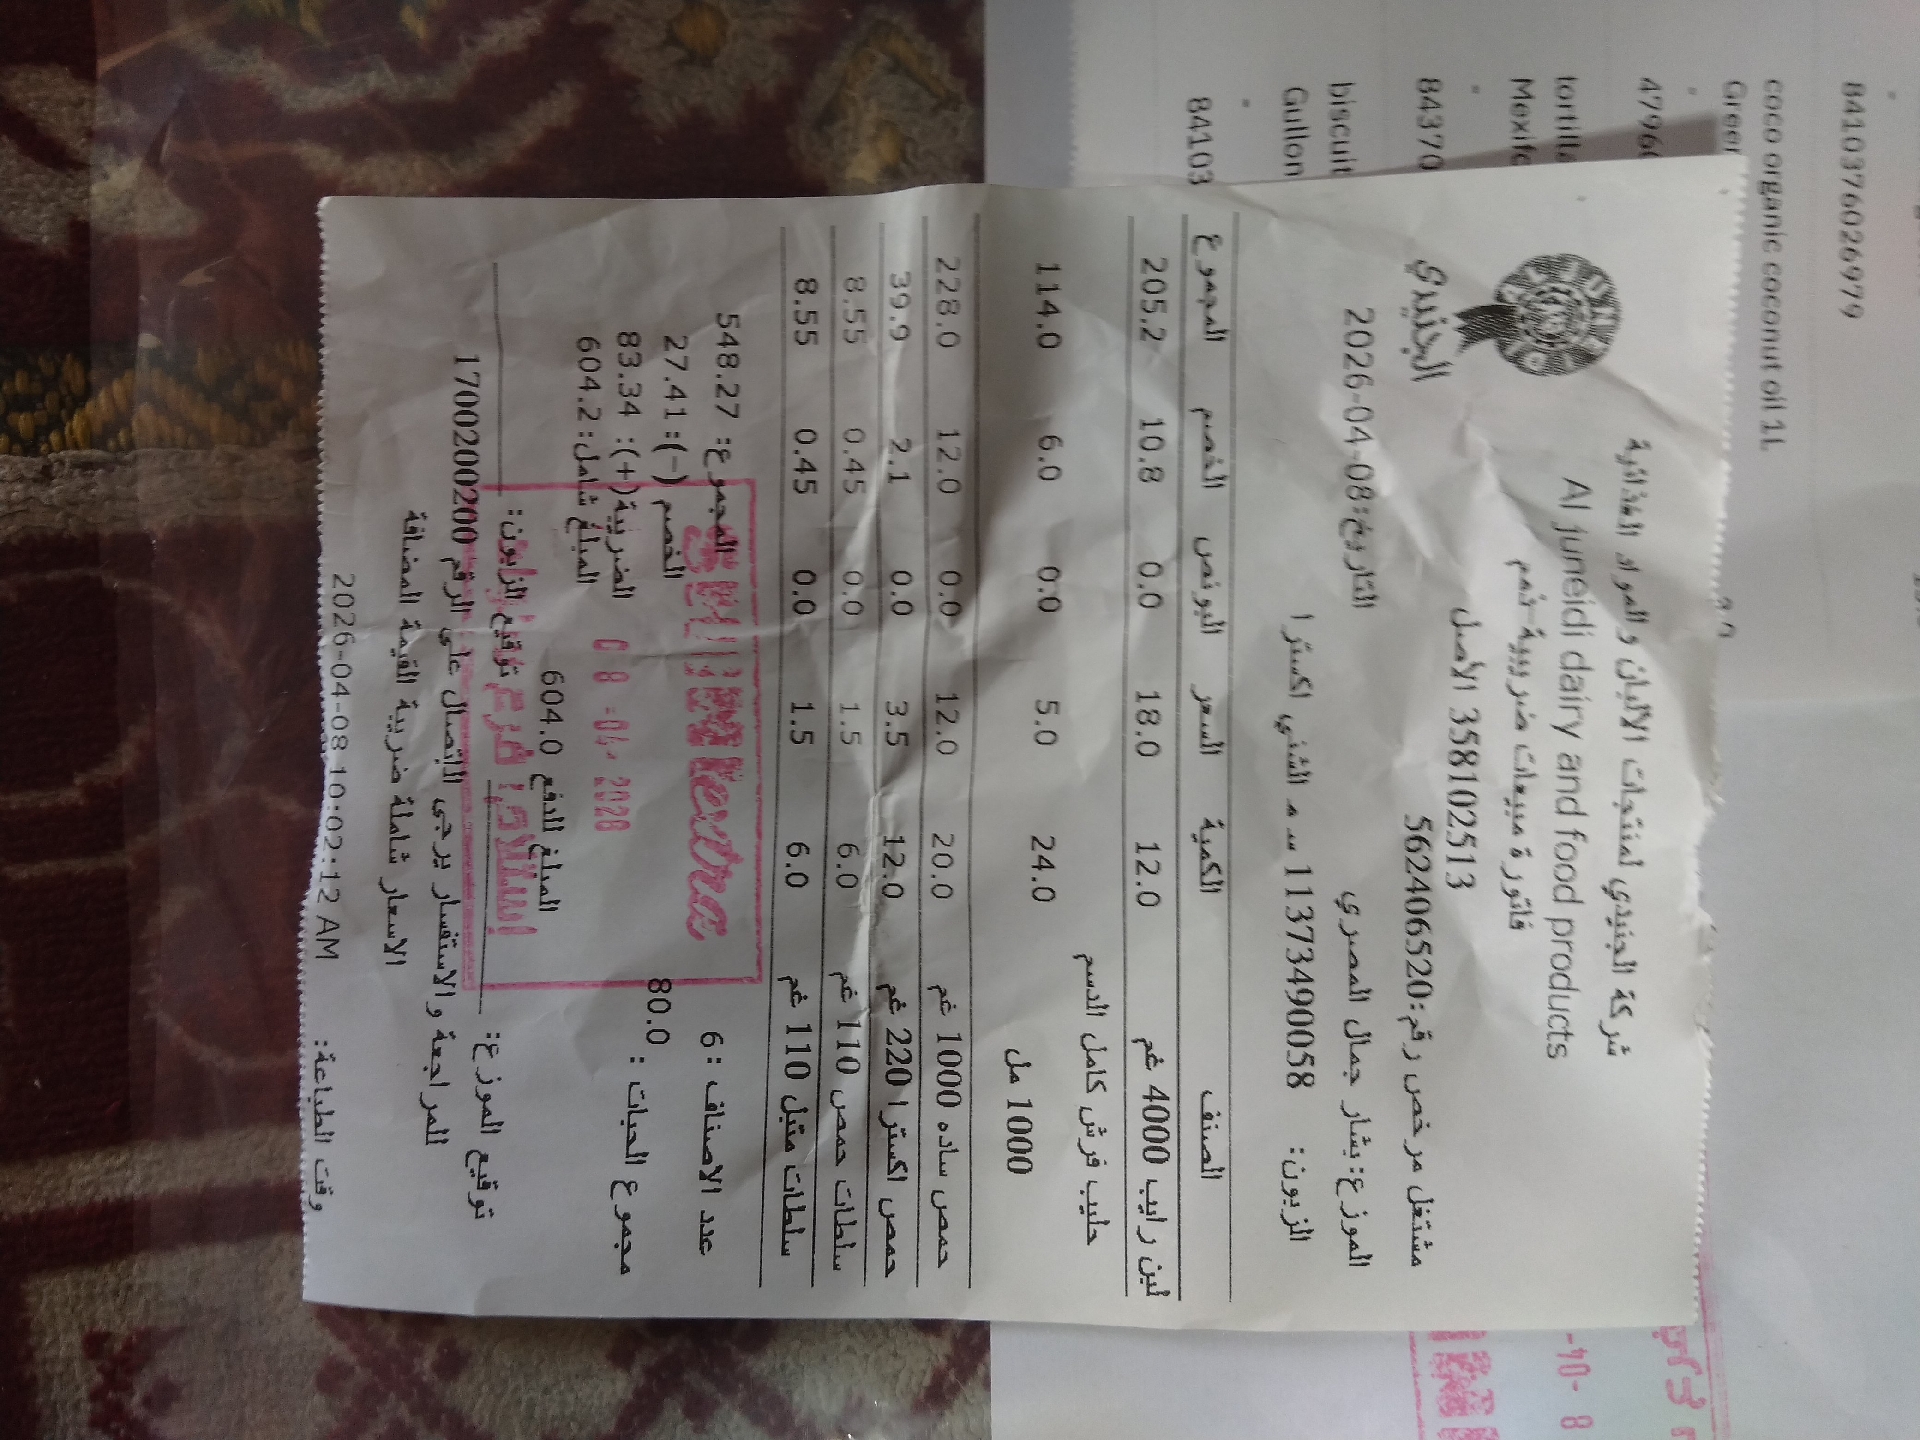 شركة الجنيدي لمنتجات الالبان و المواد الغذائية
Al juneidi dairy and food products
فاتورة مبيعات ضريبية-ثهم
35810251‎3 الأصل
الجنيدي
مشتغل مرخص رقم:562406520
الموزع: بشار جمال المصري التاريخ:2026-04-08
الزبون: 1137349‎0058 س مـ الشني اكسترا
الصنف الكمية السعر البونص الخصم المجموع
لبن رايب 4000 غم 12.0 18.0 0.0 10.8 205.2
حليب فرش كامل الدسم
1000 مل 24.0 5.0 0.0 6.0 114.0
حمص ساده 1000 غم 20.0 12.0 0.0 12.0 228.0
حمص اكسترا 220 غم 12.0 3.5 0.0 2.1 39.9
سلطات حمص 110 غم 6.0 1.5 0.0 0.45 8.55
سلطات متبل 110 غم 6.0 1.5 0.0 0.45 8.55
عدد الاصناف : 6 المجموع: 548.27
الخصم (-): 27.41
مجموع الحبات : 80.0 الضريبة(+): 83.34
المبلغ شامل: 604.2
المبلغ للدفع 604.0
extra
08 -04- 2026
توقيع الموزع: توقيع الزبون:
للمراجعة و الاستفسار يرجى الاتصال على الرقم 1700200200
الاسعار شاملة ضريبة القيمة المضافة
وقت الطباعة: 2026-04-08 10:02:12 AM
8410376026979
coco organic coconut oil 1L
tortilla
84370
biscuit
Gullon
84103